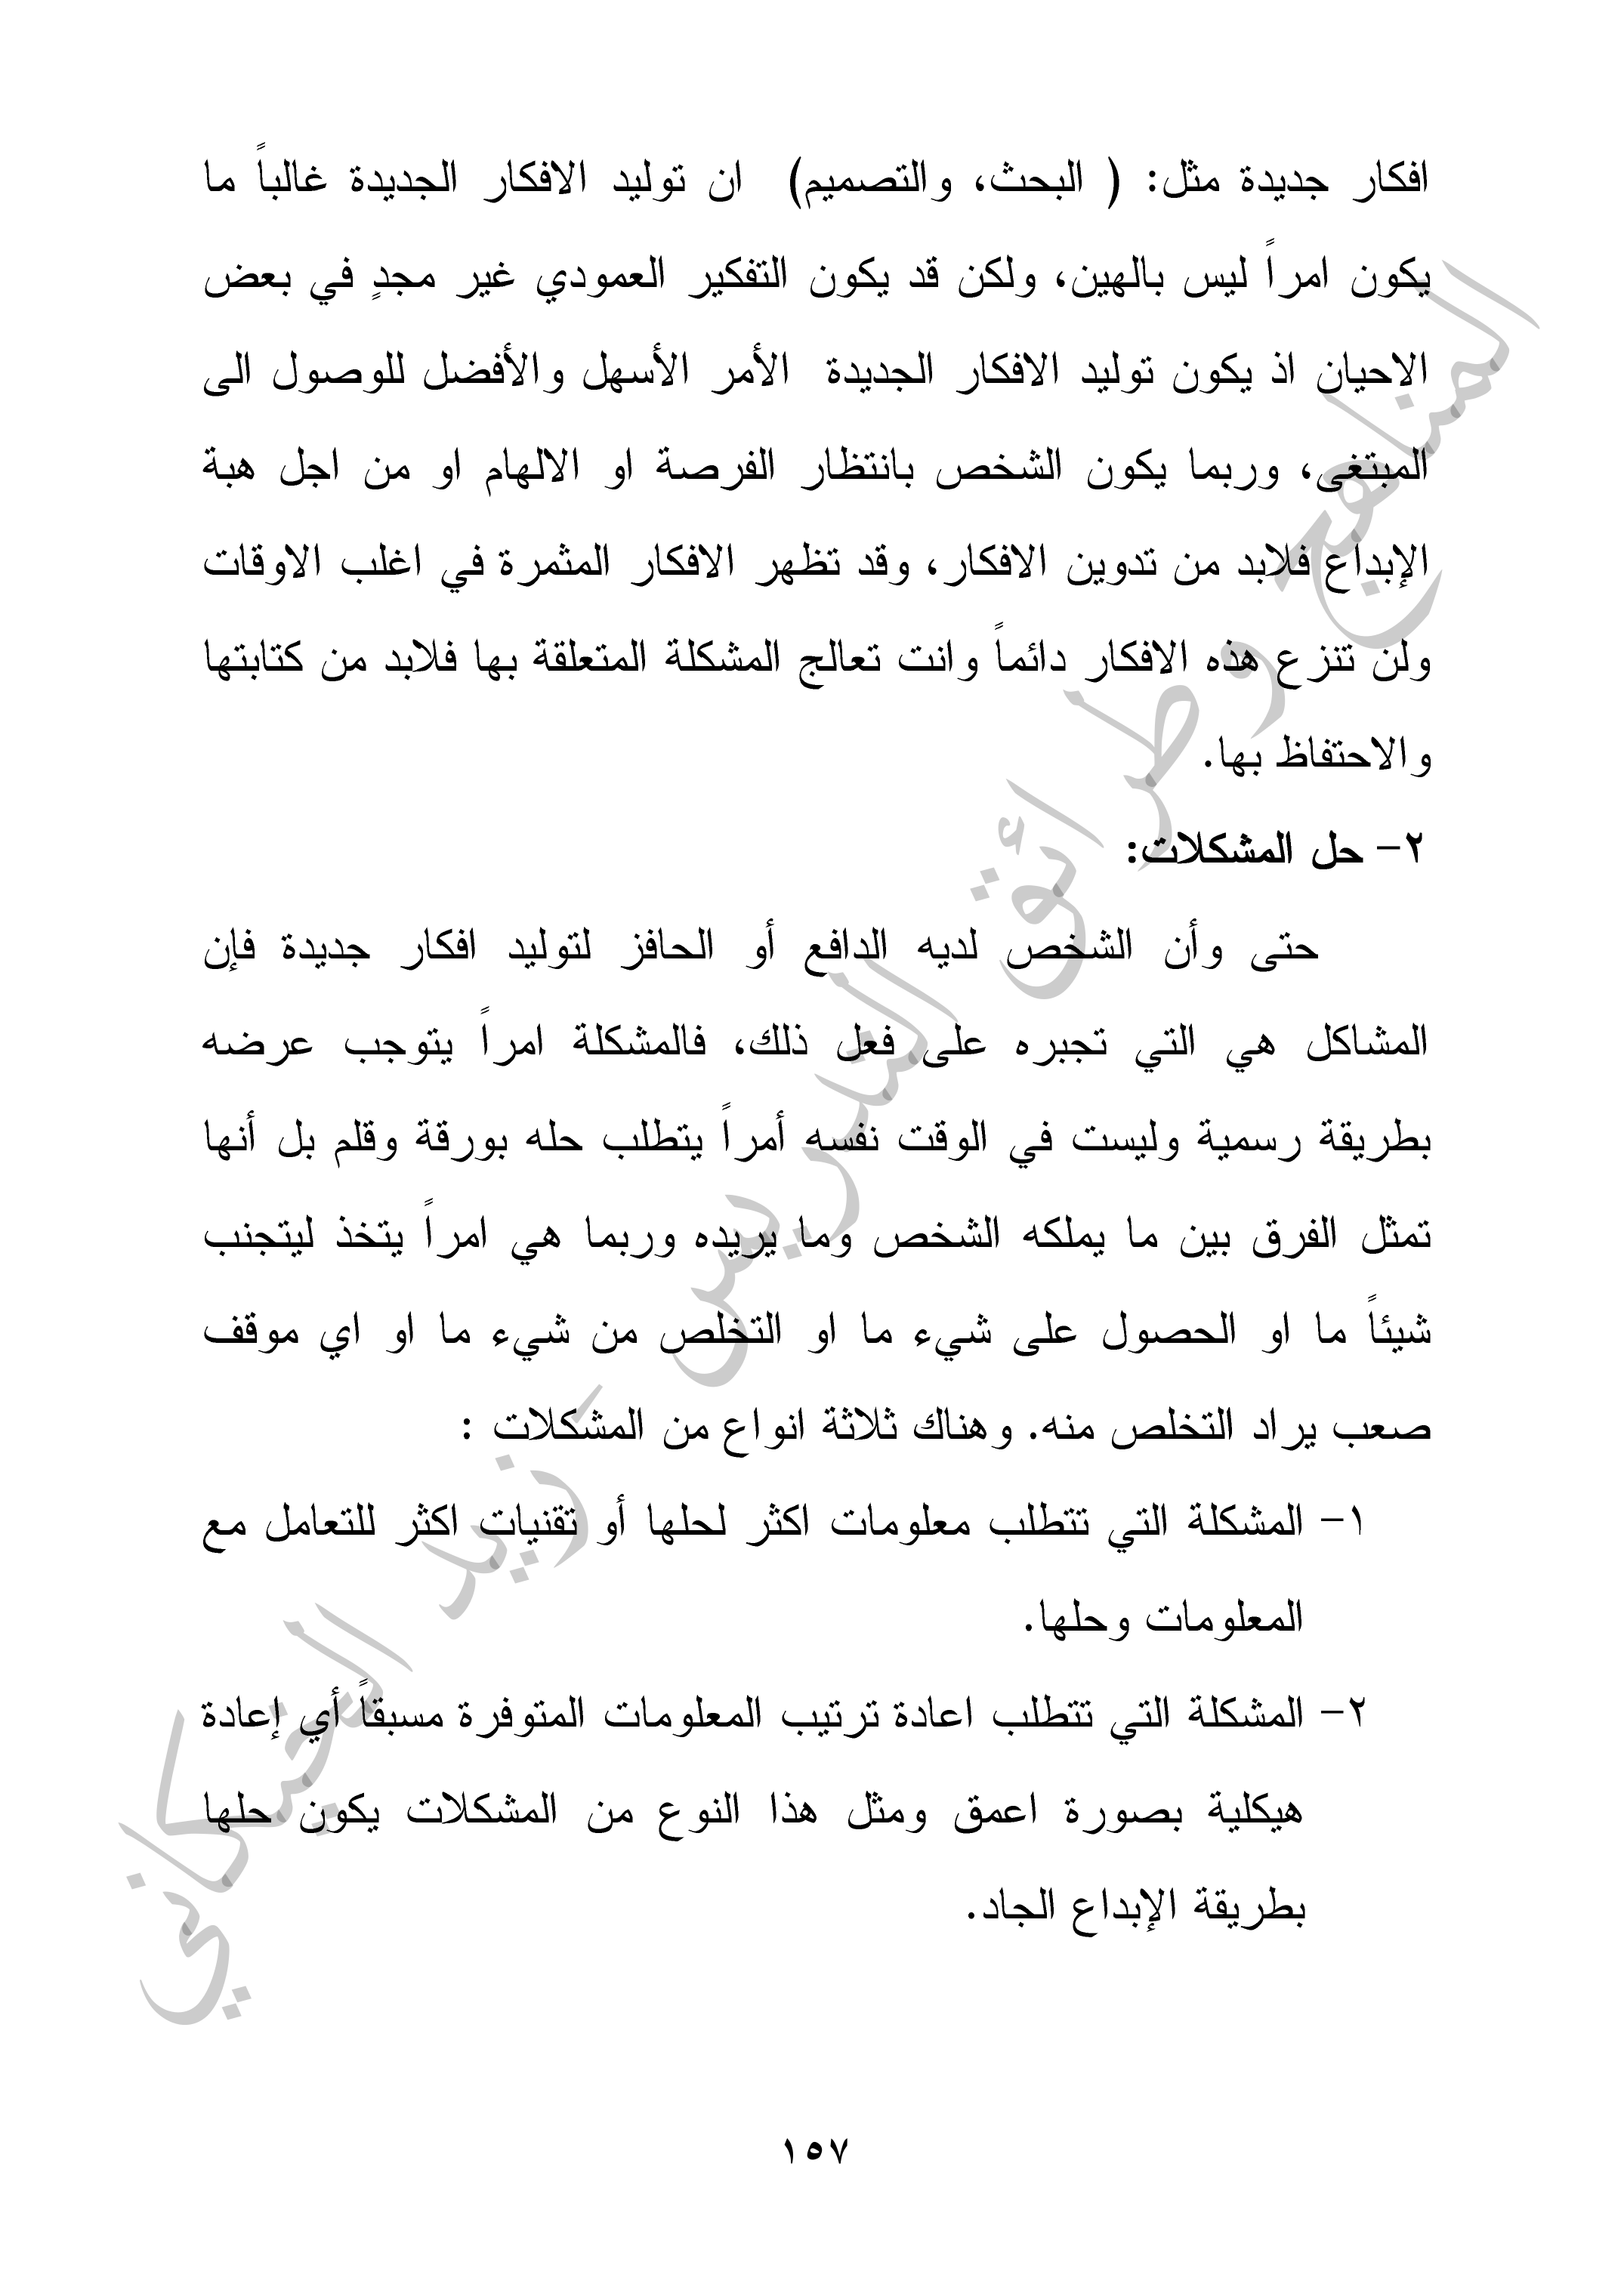 افكار جديدة مثل: ( البحث، والتصميم) ان توليد الافكار الجديدة غالباً ما
يكون امراً ليس بالهين، ولكن قد يكون التفكير العمودي غير مجدٍ في بعض
الاحيان اذ يكون توليد الافكار الجديدة الأمر الأسهل والأفضل للوصول الى
المبتغى، وربما يكون الشخص بانتظار الفرصة او الالهام او من اجل هبة
الإبداع فلابد من تدوين الافكار، وقد تظهر الافكار المثمرة في اغلب الاوقات
ولن تنزع هذه الافكار دائماً وانت تعالج المشكلة المتعلقة بها فلابد من كتابتها
والاحتفاظ بها.
٢- حل المشكلات:
حتى وأن الشخص لديه الدافع أو الحافز لتوليد افكار جديدة فإن
المشاكل هي التي تجبره على فعل ذلك، فالمشكلة امراً يتوجب عرضه
بطريقة رسمية وليست في الوقت نفسه أمراً يتطلب حله بورقة وقلم بل أنها
تمثل الفرق بين ما يملكه الشخص وما يريده وربما هي امراً يتخذ ليتجنب
شيئاً ما او الحصول على شيء ما او التخلص من شيء ما او اي موقف
صعب يراد التخلص منه. وهناك ثلاثة انواع من المشكلات :
١- المشكلة التي تتطلب معلومات اكثر لحلها أو تقنيات اكثر للتعامل مع
المعلومات وحلها.
٢- المشكلة التي تتطلب اعادة ترتيب المعلومات المتوفرة مسبقاً أي إعادة
هيكلية بصورة اعمق ومثل هذا النوع من المشكلات يكون حلها
بطريقة الإبداع الجاد.
١٥٧
المناهج وطرائق التدريس - زيد الخيكاني